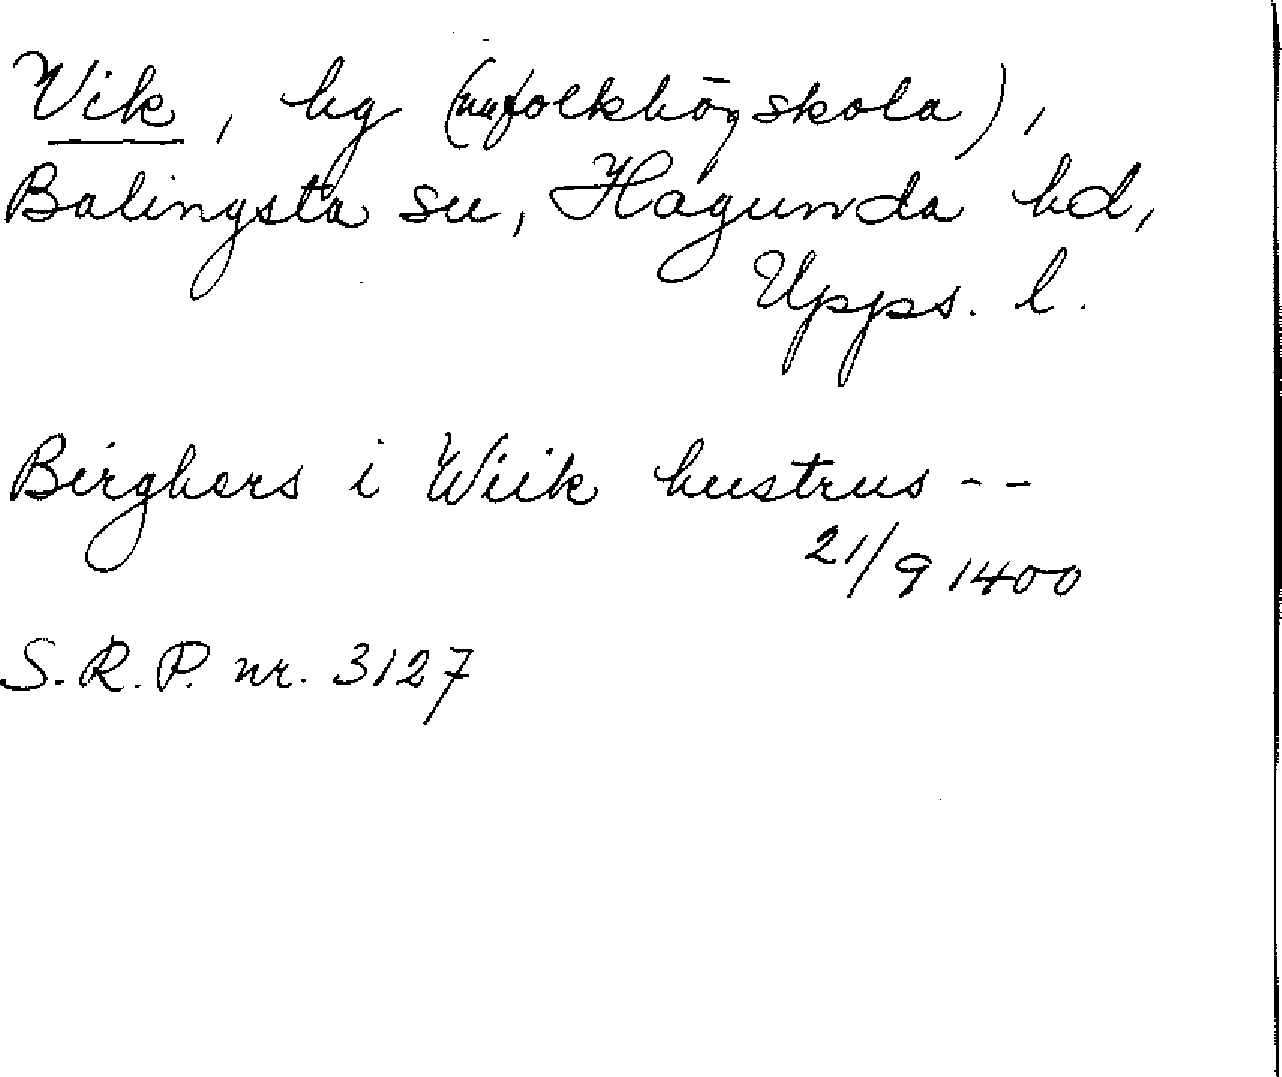 Vik, hg (nu folkhögskola),
Balingsta sn, Hagunda hd,
Upps. l.
Birghers i Wiik hustrus --
21/9 1400
S.R.P. nr. 3127